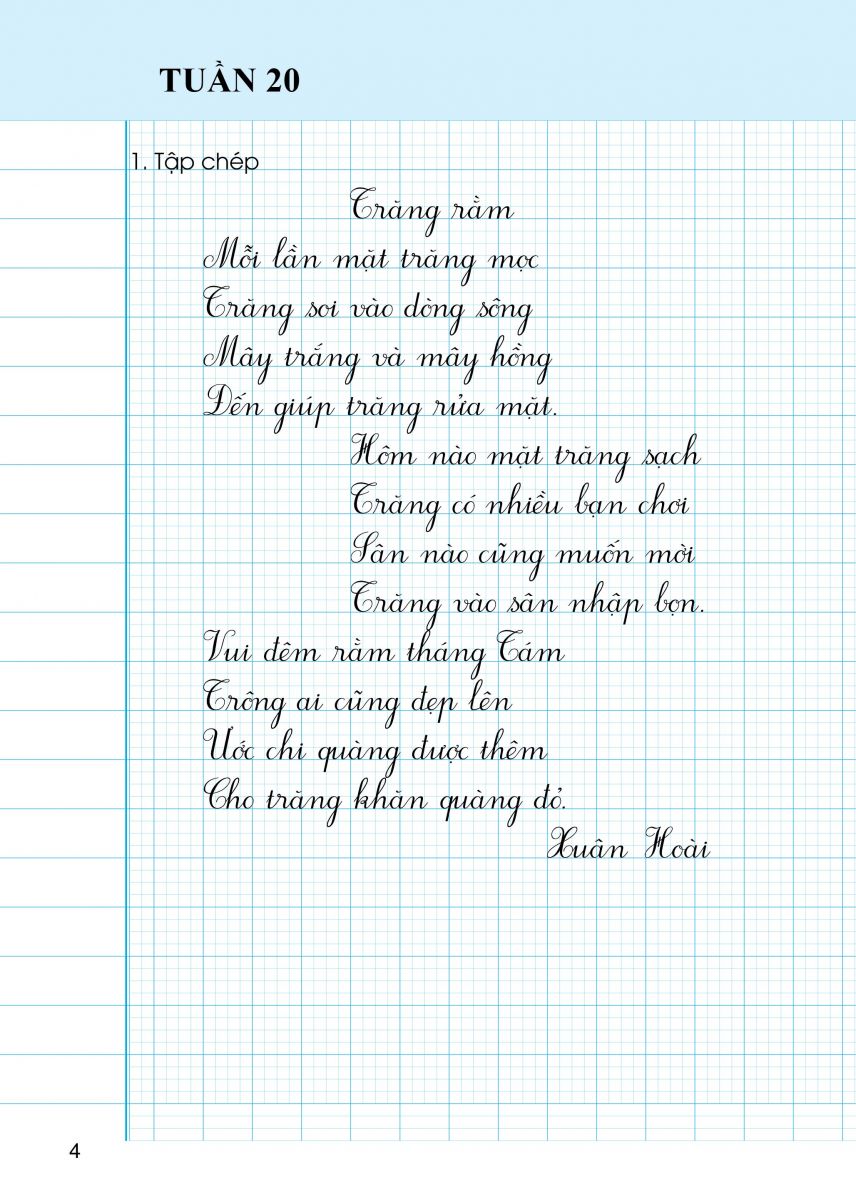 TUẦN 20
1. Tập chép
Trăng rằm
Mỗi lần mặt trăng mọc
Trăng soi vào dòng sông
Mây trắng và mây hồng
Đến giúp trăng rửa mặt.
Hôm nào mặt trăng sạch
Trăng có nhiều bạn chơi
Sân nào cũng muốn mời
Trăng vào sân nhập bọn.
Vui đêm rằm tháng Tám
Trông ai cũng đẹp lên
Ước chi quàng được thêm
Cho trăng khăn quàng đỏ.
Xuân Hoài
4